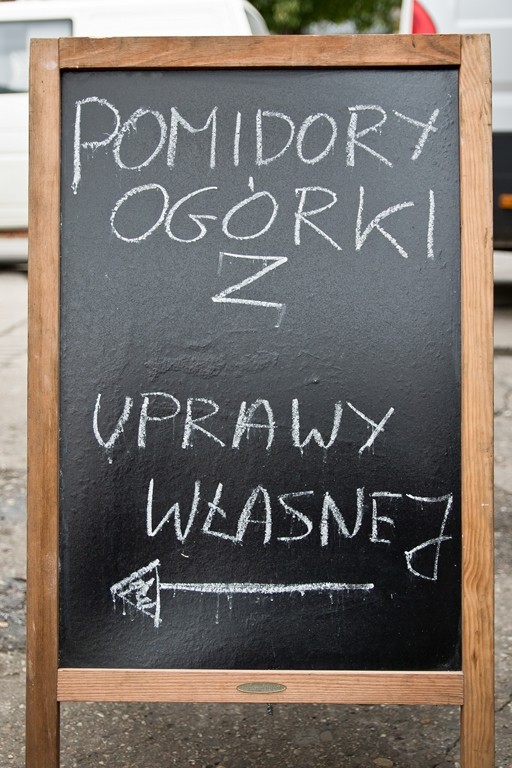 POMIDORY
OGÓRKI
Z
UPRAWY
WŁASNEJ